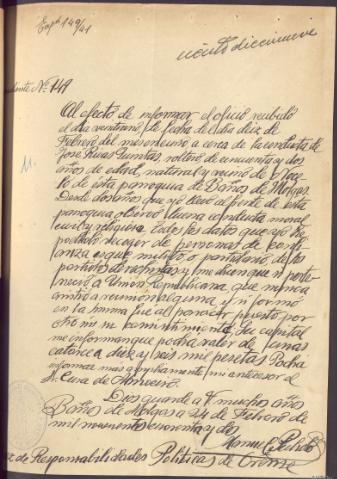 Expte 149/41
ciento diecinueve
Nº 149
Al efecto de informar el oficio recibido
el dia veintiuno, de fecha del dia diez de
Febrero del mes en curso a cerca de la conducta de
José Rivas, soltero de cincuenta y dos
años de edad, natural y vecino de
de esta parroquia de Baños de Molgas.
Desde dos años que yo llevo al frente de esta
parroquia observó buena conducta moral
y religiosa. Todos los datos que yo he
podido recoger de personas de confi
anza es que militó o partidario de los
partidos derechistas y me dicen que ni perte
neció a Union Republicana, que nunca
asistió a reunion alguna y si formó
en la misma fue al parecer puesto por
otro sin consentimiento. Su capital
me informan que podrá valer de unas
catorce a diez y seis mil pesetas. Podra
informar mas ampliamente mi antecesor de
Cura de
Dios guarde a V. muchos años
Baños de Molgas a 24 de Febrero de
mil novecientos cuarenta y dos
Manuel
de Responsabilidades Politicas de Orense